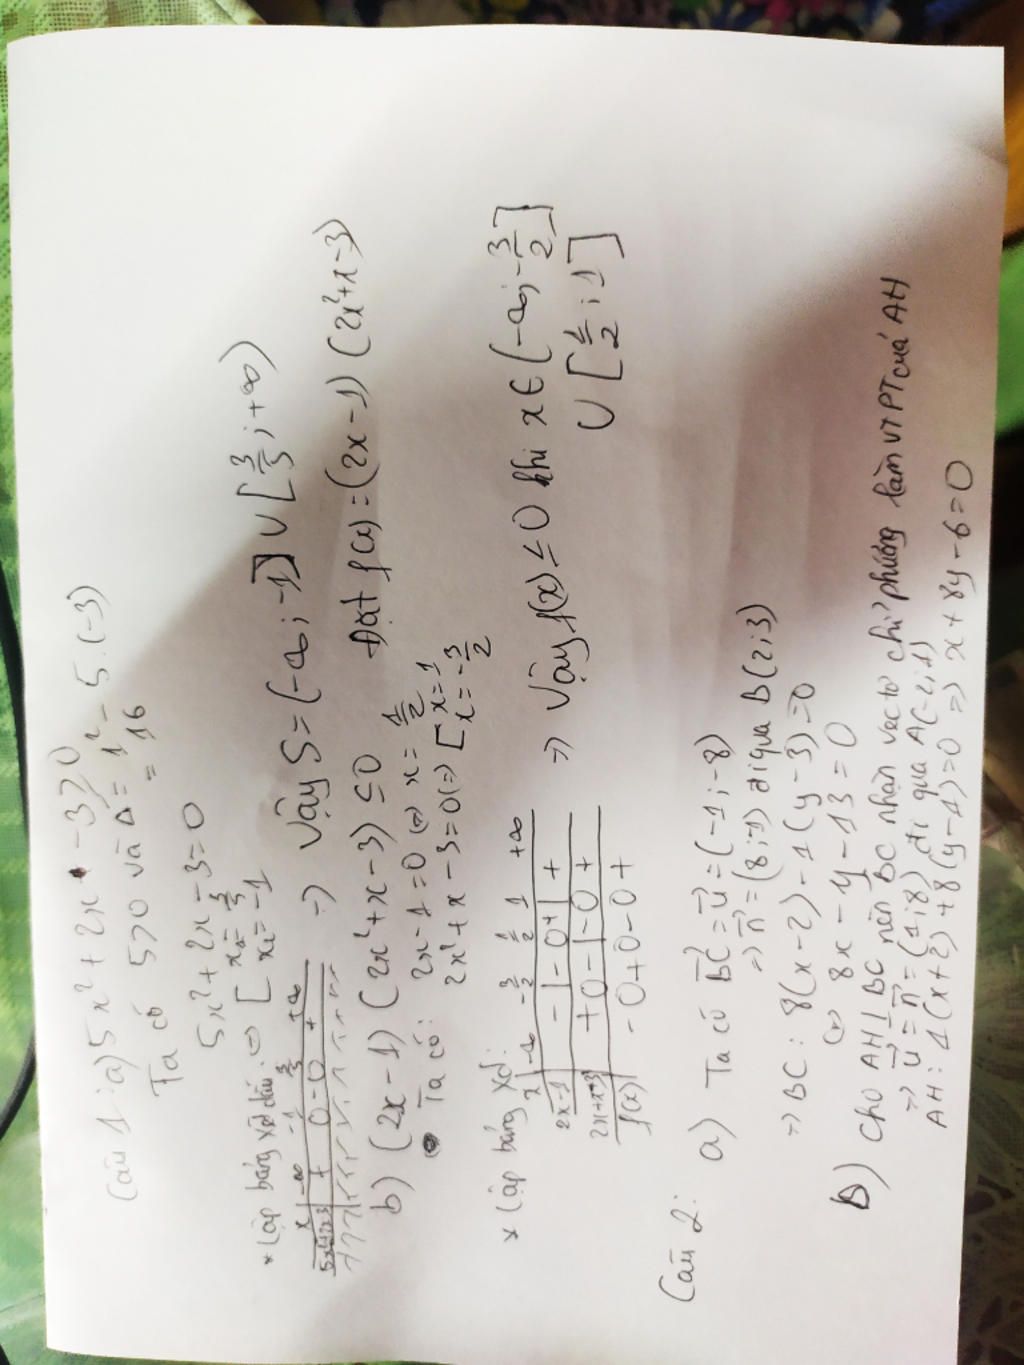 Câu 1: a) 5x² + 2x - 3 ≥ 0
Ta có 5 > 0 và Δ = 1² - 5.(-3)
= 16
5x² + 2x - 3 = 0
* Lập bảng xét dấu: (=) [ x₁ = 3/5
x₂ = -1
x | -∞ -1 3/5 +∞
5x²+2x-3 | + 0 - 0 +
=> Vậy S = (-∞; -1] ∪ [3/5; +∞)
b) (2x - 1) (2x² + x - 3) ≤ 0 Đặt f(x) = (2x - 1) (2x² + x - 3)
Ta có: 2x - 1 = 0 (=) x = 1/2
2x² + x - 3 = 0 (=) [ x = 1
x = -3/2
* Lập bảng xd:
x | -∞ -3/2 1/2 1 +∞
2x-1 | - | - 0 + | +
2x²+x-3 | + 0 - | - 0 +
f(x) | - 0 + 0 - 0 +
=> Vậy f(x) ≤ 0 khi x ∈ (-∞; -3/2]
∪ [1/2; 1]
Câu 2: a) Ta có BC⃗ = u⃗ = (-1; -8)
=> n⃗ = (8; -1) đi qua B(2; 3)
=> BC: 8(x - 2) - 1(y - 3) = 0
(=) 8x - y - 13 = 0
B) Cho AH ⊥ BC nên BC nhận vectơ chỉ phương làm VTPT của AH
=> u⃗ = n⃗ = (1; 8) đi qua A(-2; 1)
AH: 1(x + 2) + 8(y - 1) = 0 => x + 8y - 6 = 0